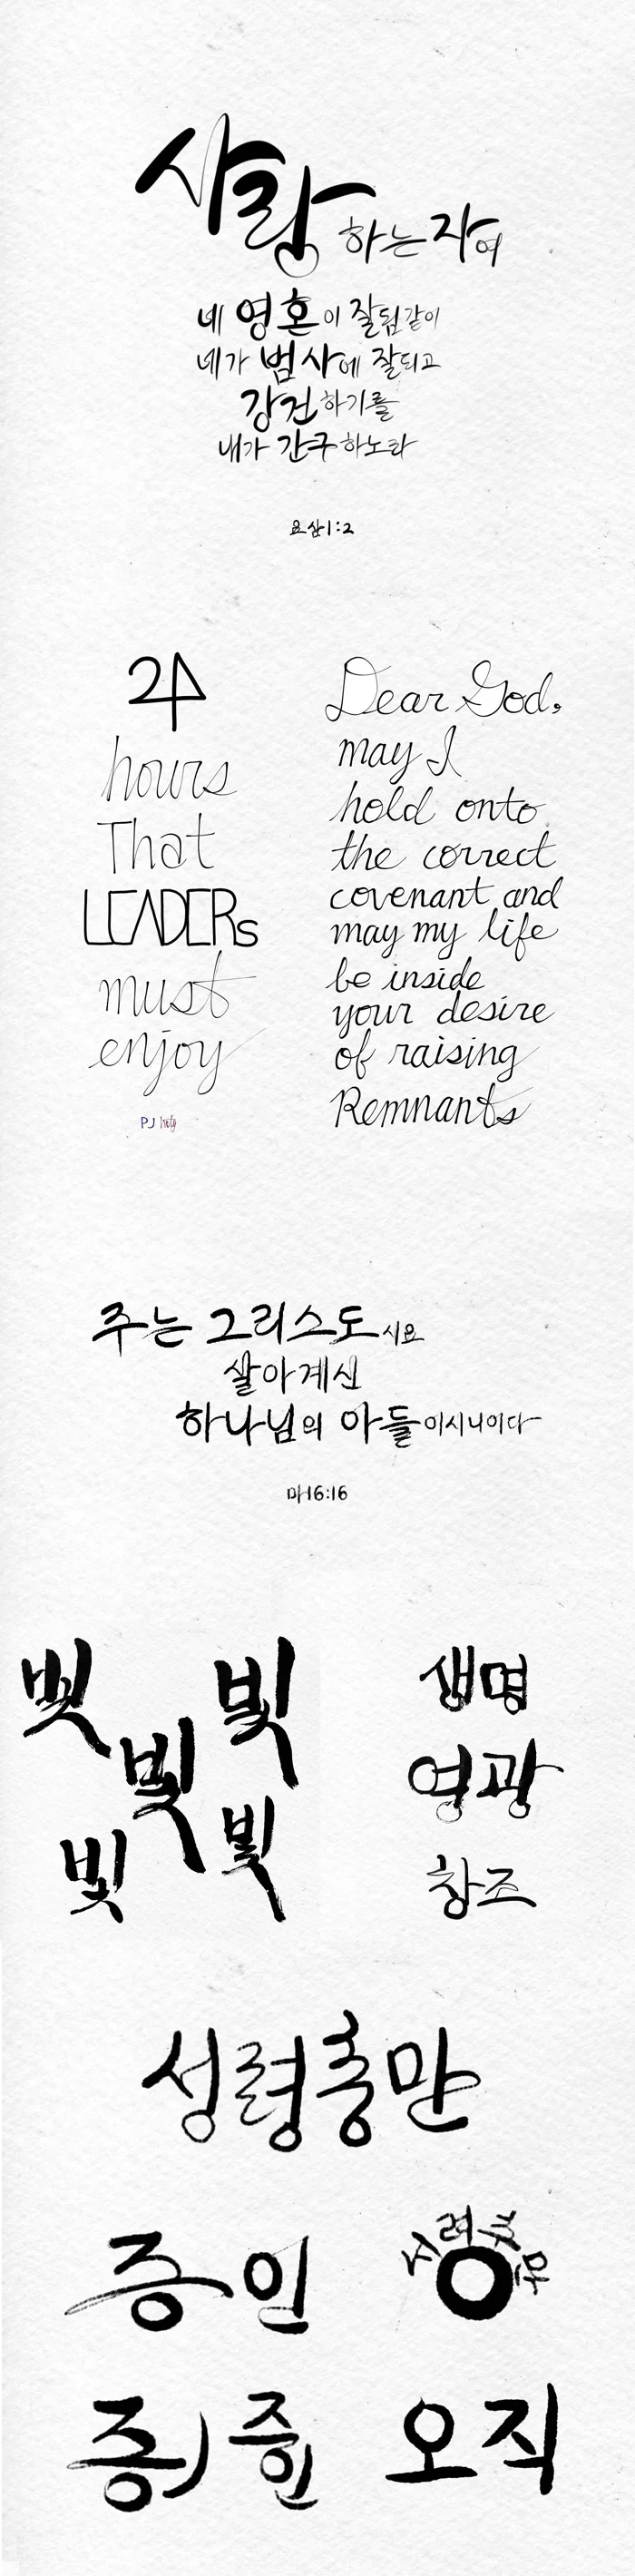 사랑하는 자여
네 영혼이 잘됨같이
네가 범사에 잘되고
강건하기를
내가 간구하노라
요삼1:2
24
hours
That
LEADERs
must
enjoy
PJ
Dear God,
may I
hold onto
the correct
covenant and
may my life
be inside
your desire
of raising
Remnants
주는 그리스도시요
살아계신
하나님의 아들이시니이다
마16:16
빛 빛
빛
빛 빛
생명
영광
창조
성령충만
증인
증인 증인
오직